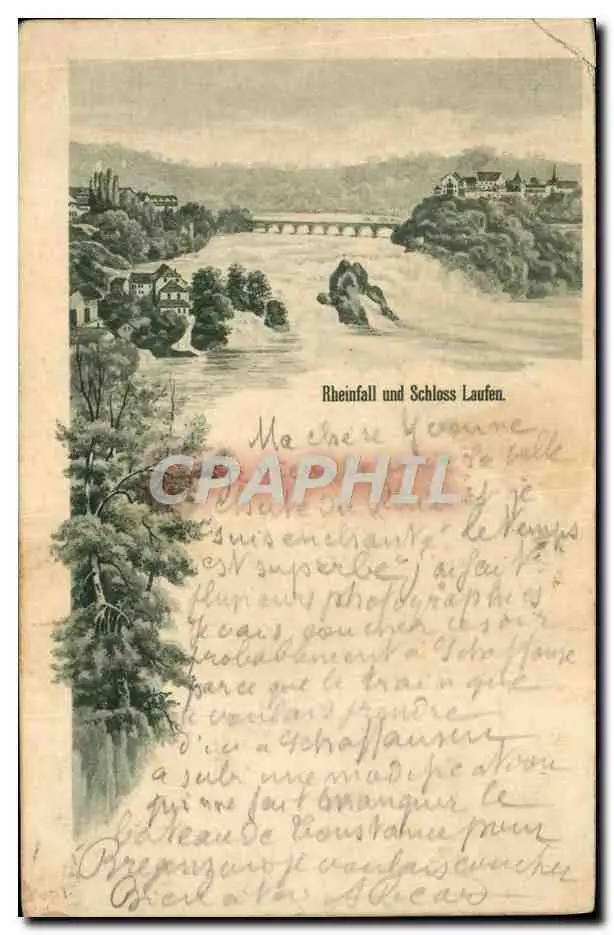 Rheinfall und Schloss Laufen.
Ma chère Yvonne
la belle
CPAPHIL
chute du je
suis enchanté le temps
est superbe j'ai fait
plusieurs photographies
Je vais coucher ce soir
probablement à Schaffouse
parce que le train que
je voulais prendre
d'ici à Schaffausen
a subi une modification
qui me fait manquer le
bateau de Constance pour
Breganz où je voulais coucher
Bien à toi A Picard